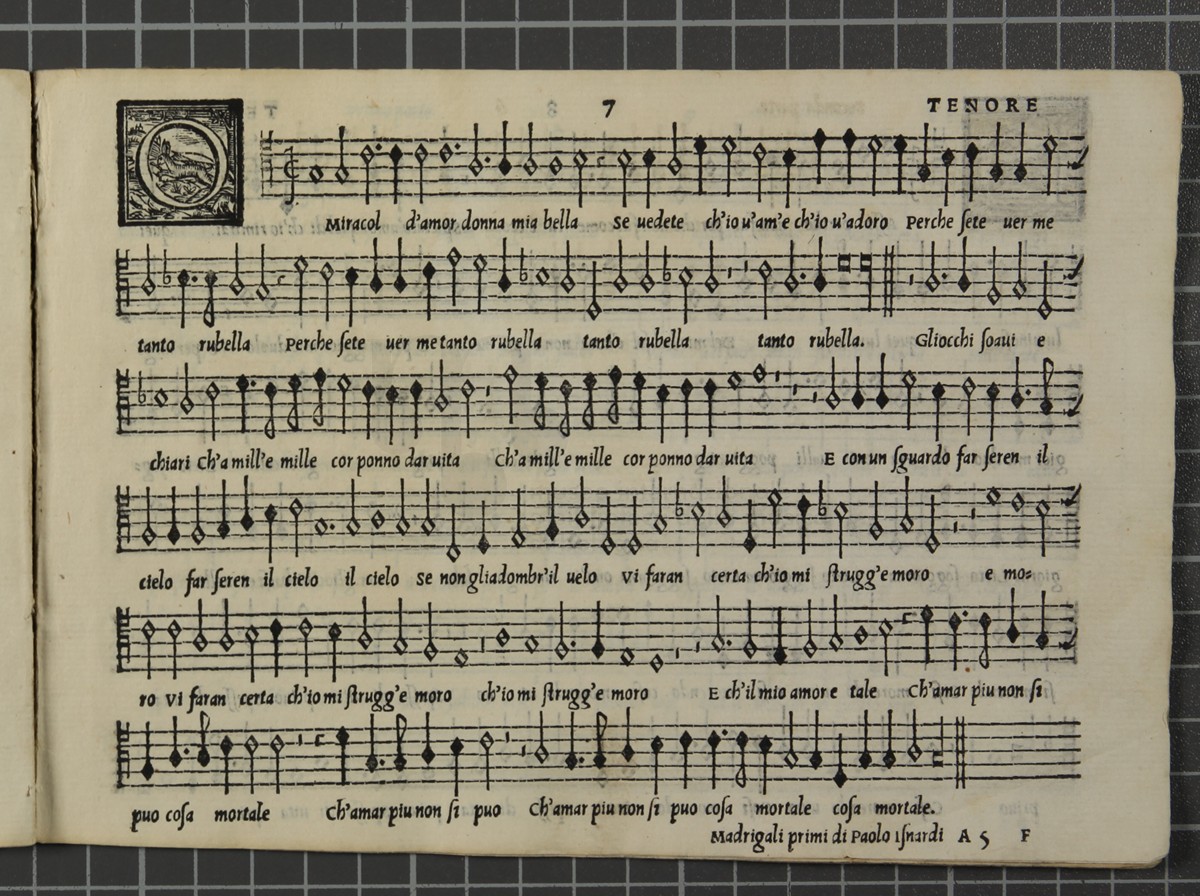 7 TENORE
O Miracol d'amor donna mia bella Se uedete ch'io u'am'e ch'io u'adoro Perche ſete uer me
tanto rubella Perche ſete uer me tanto rubella tanto rubella tanto rubella. Gliocchi ſoaui e
chiari Ch'a mill'e mille cor ponno dar uita Ch'a mill'e mille cor ponno dar uita E con un ſguardo far ſeren il
cielo far ſeren il cielo il cielo Se non gliadombr'il uelo Vi faran certa ch'io mi ſtrugg'e moro e mo=
ro Vi faran certa ch'io mi ſtrugg'e moro ch'io mi ſtrugg'e moro E ch'il mio amor e tale Ch'amar piu non ſi
puo coſa mortale Ch'amar piu non ſi puo Ch'amar piu non ſi puo coſa mortale coſa mortale.
Madrigali primi di Paolo Iſnardi A 5 F